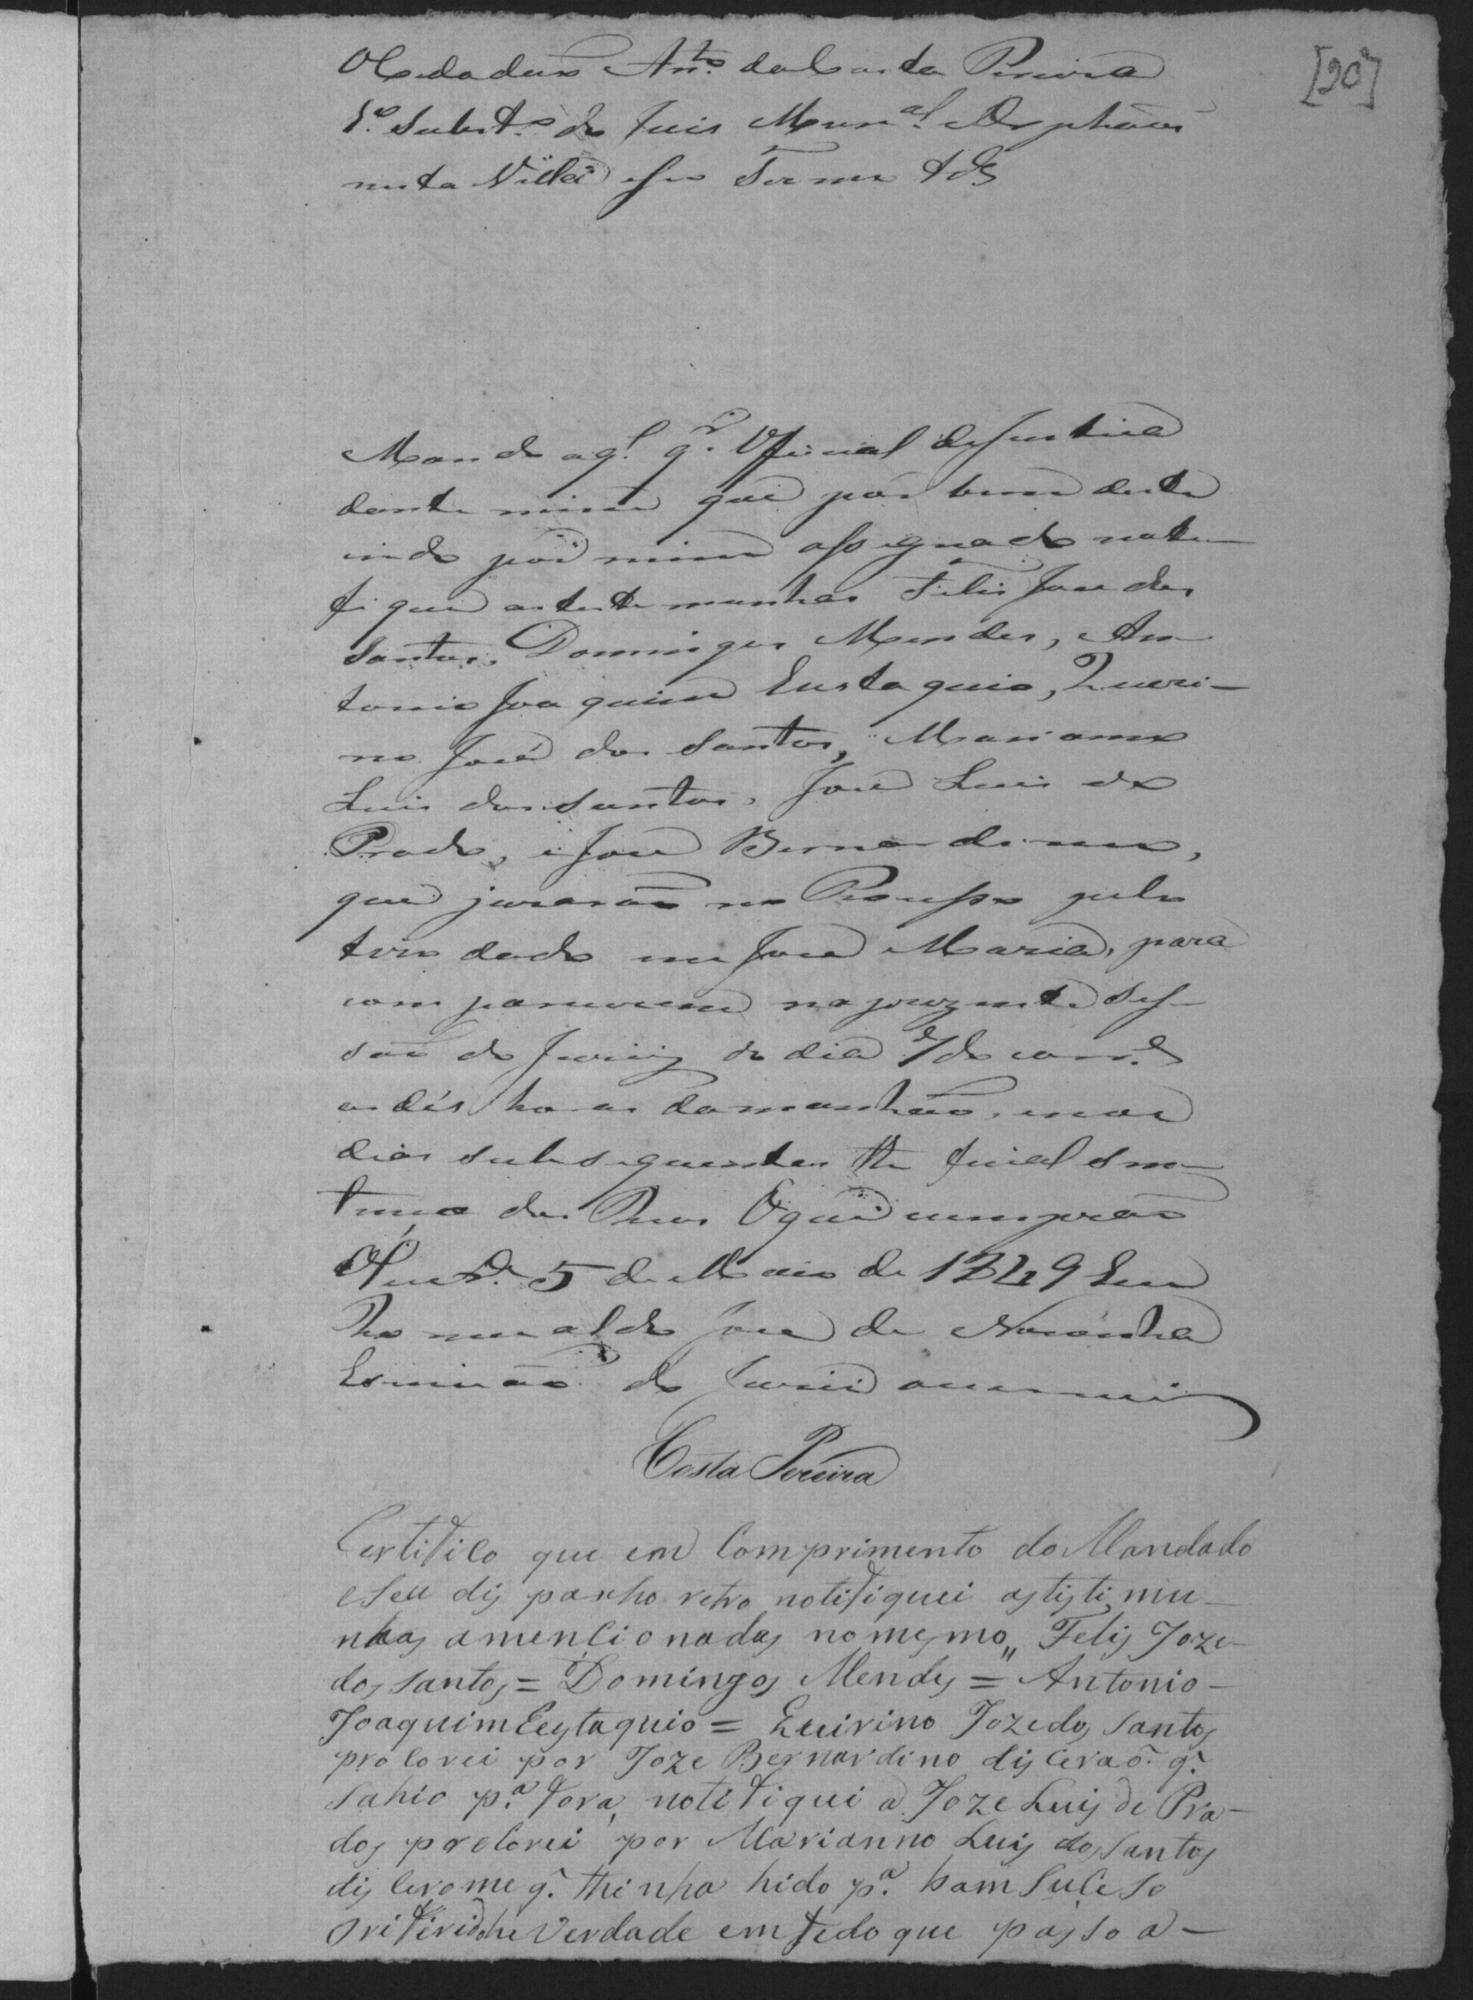 [20]
O Cidadão Ant.o da Costa Pereira
1.o Subst.o do Juis Mun.al e Orphãos
nesta Villa e seo Termo &
Mando a q.l q.r Official de Justiça
dante mim que por bem deste
indo por mim assignado noti-
fique as testemunhas Felis Jose dos
Santos, Domingos Mendes, An-
tonio Joaquim Eustaquio, Queri-
no José dos Santos, Marianno
Luis dos Santos, José Luis de
Prado, e José Bernardino,
que jurarão no Processo pelo
tiro dado em José Maria, para
comparecerem na prezente Ses-
são do Jury do dia 7 do corr.e
as dés horas da manhão, e nos
dias subsequentes the final sen-
tença dos Reos O que cumprão
5 de Maio de 1849 Eu
Romualdo José de Noronha
Escrivão do Jurii o escrevi
Costa Pereira
Certifico que em Comprimento do Mandado
e Seu dis paxho retro notifiquei as tisti mu-
nhas amencionadas no mesmo,, Felis Joze
dos santos = Domingos Mendes = Antonio
Joaquim Eustaquio = Quirino Joze dos santos
procorei por Joze Bernardino disceraõ q.
sahio p.a fora, notifiqui a Joze Luis de Pra-
dos procorei por Marianno Luis dos santos
discerome q. thinha hido p.a bam suceso
oriferido he verdade em fe do que passo a-